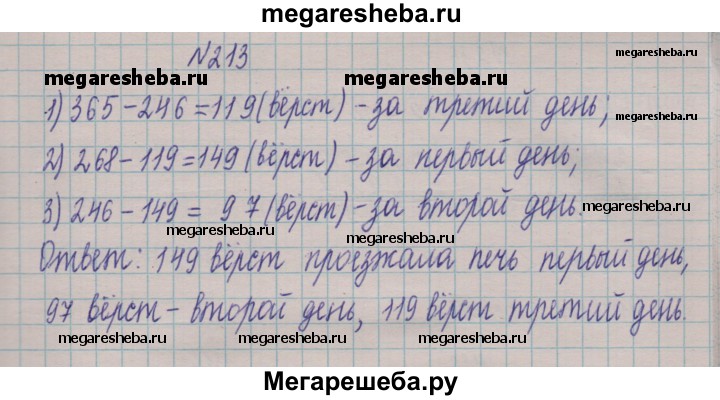 megaresheba.ru
№213
megaresheba.ru
megaresheba.ru megaresheba.ru
1) 365-246=119(вёрст)-за третий день;
megaresheba.ru
2) 268-119=149(вёрст)-за первый день;
3) 246-149= 97(вёрст)-за второй день.
megaresheba.ru
megaresheba.ru
megaresheba.ru
Ответ: 149 вёрст проезжала печь первый день,
97 вёрст-второй день, 119 вёрст третий день.
megaresheba.ru
megaresheba.ru
megaresheba.ru
Мегарешеба.ру